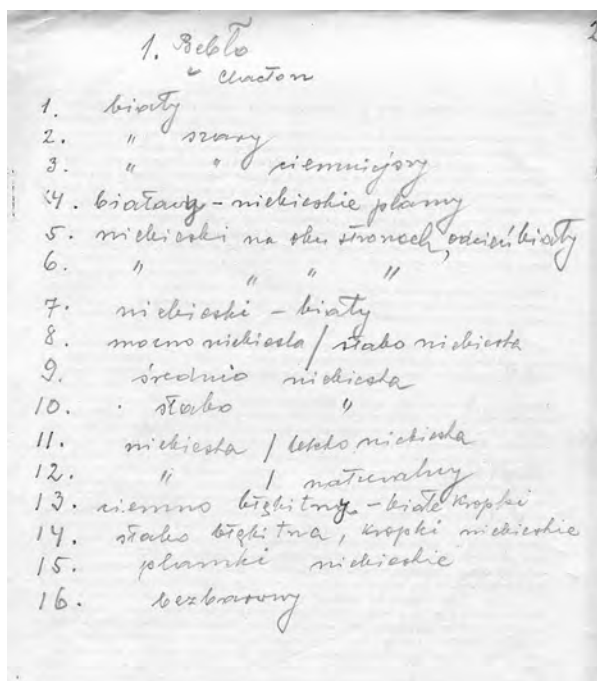 2
1. Bebło
Chacton
1. biały
2. " szary
3. " " ciemniejszy
4. białawy - niebieskie plamy
5. niebieski na obu stronach, odcień biały
6. " " " "
7. niebieski - biały
8. mocno niebieska / słabo niebieska
9. średnio niebieska
10. słabo "
11. niebieska / lekko niebieska
12. " / naturalny
13. ciemno błękitny - białe kropki
14. słabo błękitna, kropki niebieskie
15. plamki niebieskie
16. bezbarwny